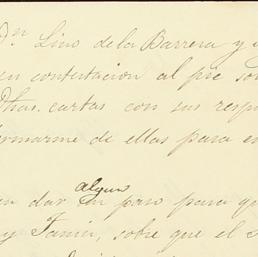 Dn Lino de la Barrera y
en contestacion al pié
Dhas. cartas con sus
de ellas para
algun
en dar un paso para
y Tamir, sobre que el